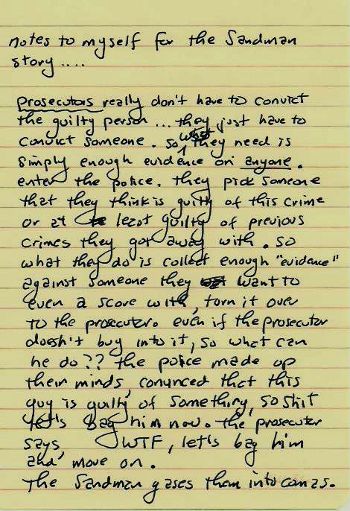 notes to myself for the Sandman
story....
prosecutors really don't have to convict
the guilty person... they just have to
convict someone. so what they need is
simply enough evidence on anyone.
enter the police. they pick someone
that they think is guilty of this crime
or at least guilty of previous
crimes they got away with. so
what they do is collect enough "evidence"
against someone they want to
even a score with, torn it over
to the prosecutor. even if the prosecutor
doesn't buy into it, so what can
he do?? the police made up
their minds, convinced that this
guy is guilty of something, so shit
let's bag him now. the prosecuter
says, WTF, let's bag him
and move on.
The Sandman gases them into comas.